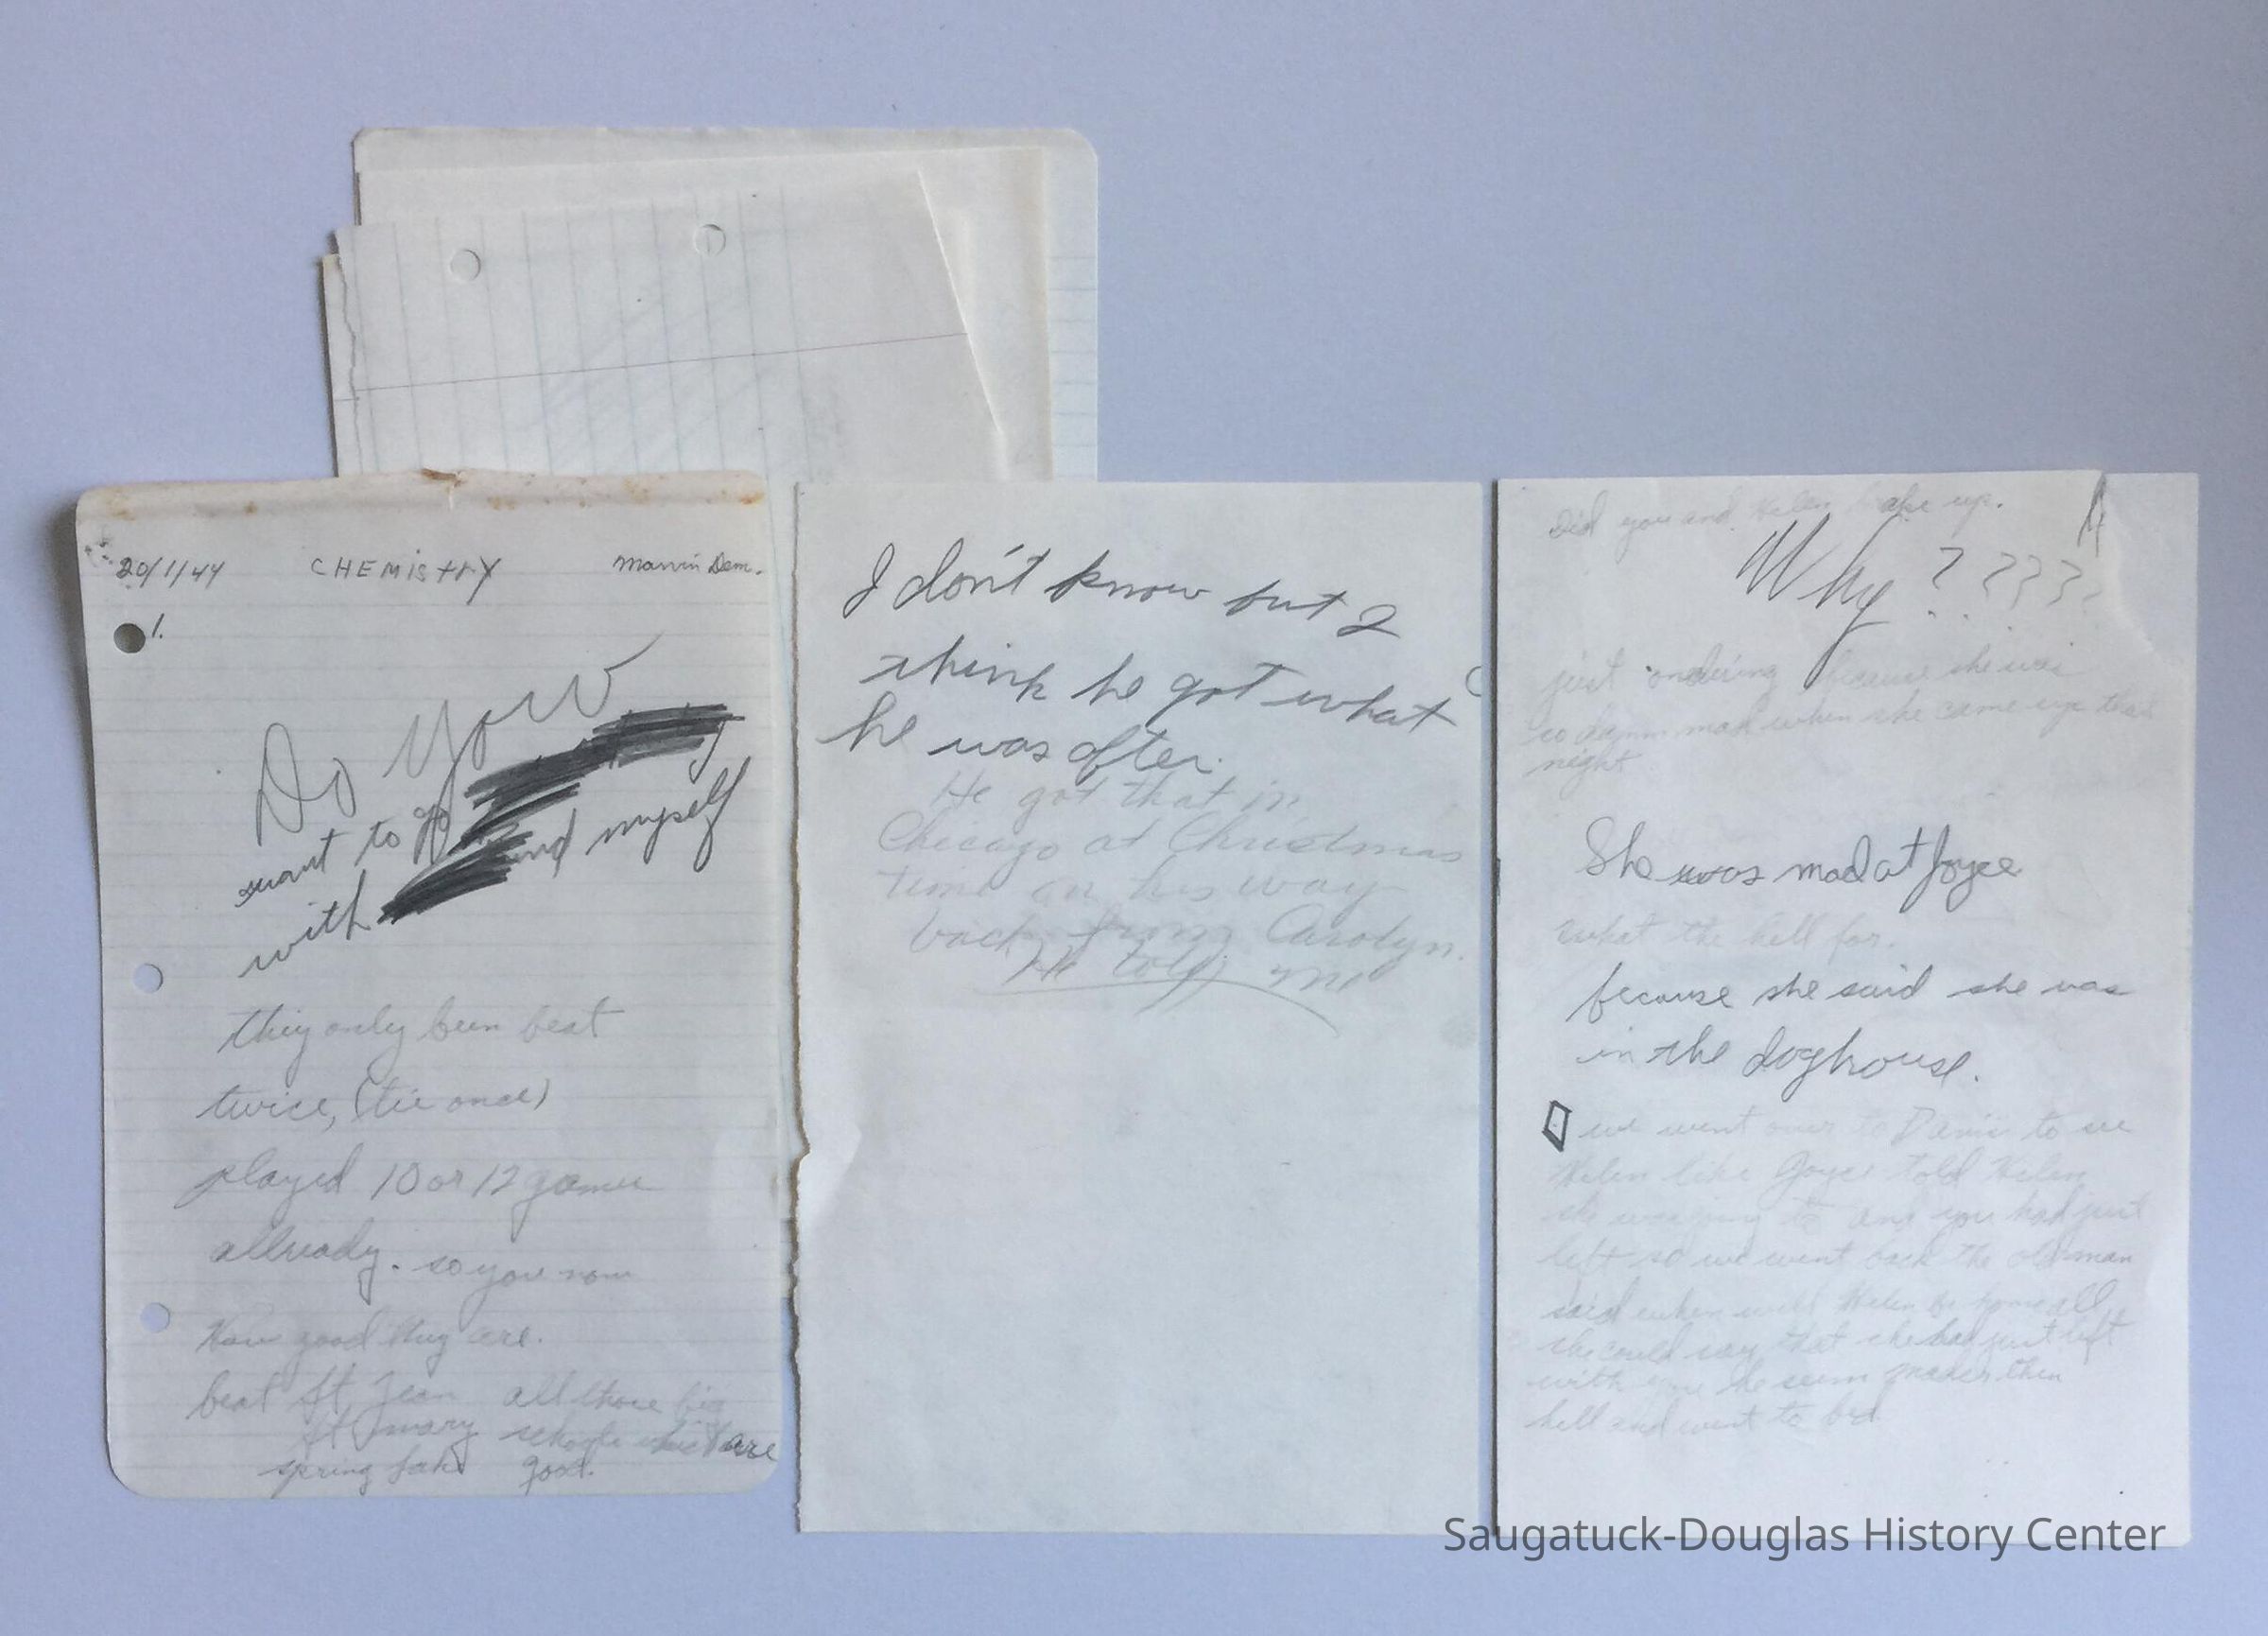 20/1/44 CHEMistry Marvin Dem.
1.
Do you
want to go
with and myself
they only been beat
twice, (tie once)
played 10 or 12 games
allready. so you now
How good they are.
beat St Jean all those big
St mary schools which are
spring lake good.
I don't know but I
think he got what
he was after.
He got that in
Chicago at Christmas
time on his way
back from Carolyn.
He told me
Did you and Helen up.
Why ?????
just ondering because she was
so damn mad when she came up that
night
She was mad at Joyce
what the hell for.
because she said she was
in the doghouse.
we went over to to see
Helen like Joyce told Helen
she was going to and you had just
left so we went back the old man
said when will Helen be home all
she could say that she had just left
with you he seem then
hell and went to bed
Saugatuck-Douglas History Center